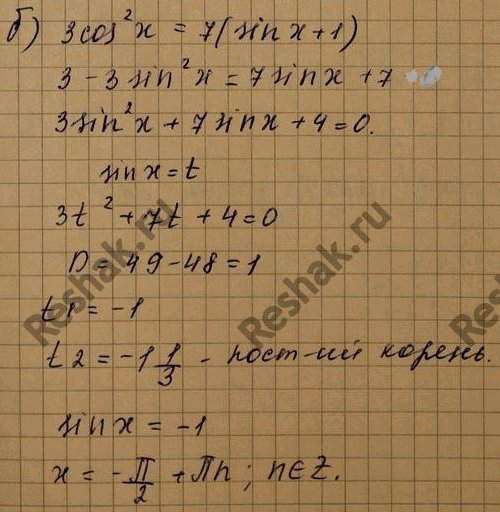 б) 3cos²x = 7(sinx+1)
3 - 3sin²x = 7sinx + 7
3sin²x + 7sinx + 4 = 0.
sinx = t
3t² + 7t + 4 = 0
D = 49 - 48 = 1
t1 = -1
t2 = -1 1/3 - пост-ий корень.
sinx = -1
x = -π/2 + πn; n∈Z.
Reshak.ru
Reshak.ru
Resh